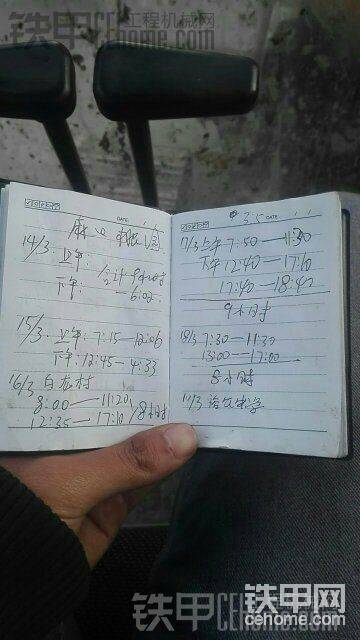 铁甲工程机械网
cehome.com
DATE
14/3. 上午:
下午:
—6:00.
15/3. 上午: 7:15—12:06
下午: 12:45—4:33
16/3 白石村
8:00—11:20
12:35—17:10/8小时
DATE
17/3 上午 7:50—11:30
下午 12:40—17:10
17:40—18:40
9小时
18/3 7:30—11:30
13:00—17:00
8小时
铁甲网
cehome.com
铁甲 CEhome.com